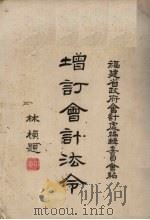 福建省政府會計處編輯委員會編
增訂會計法令
林楨題